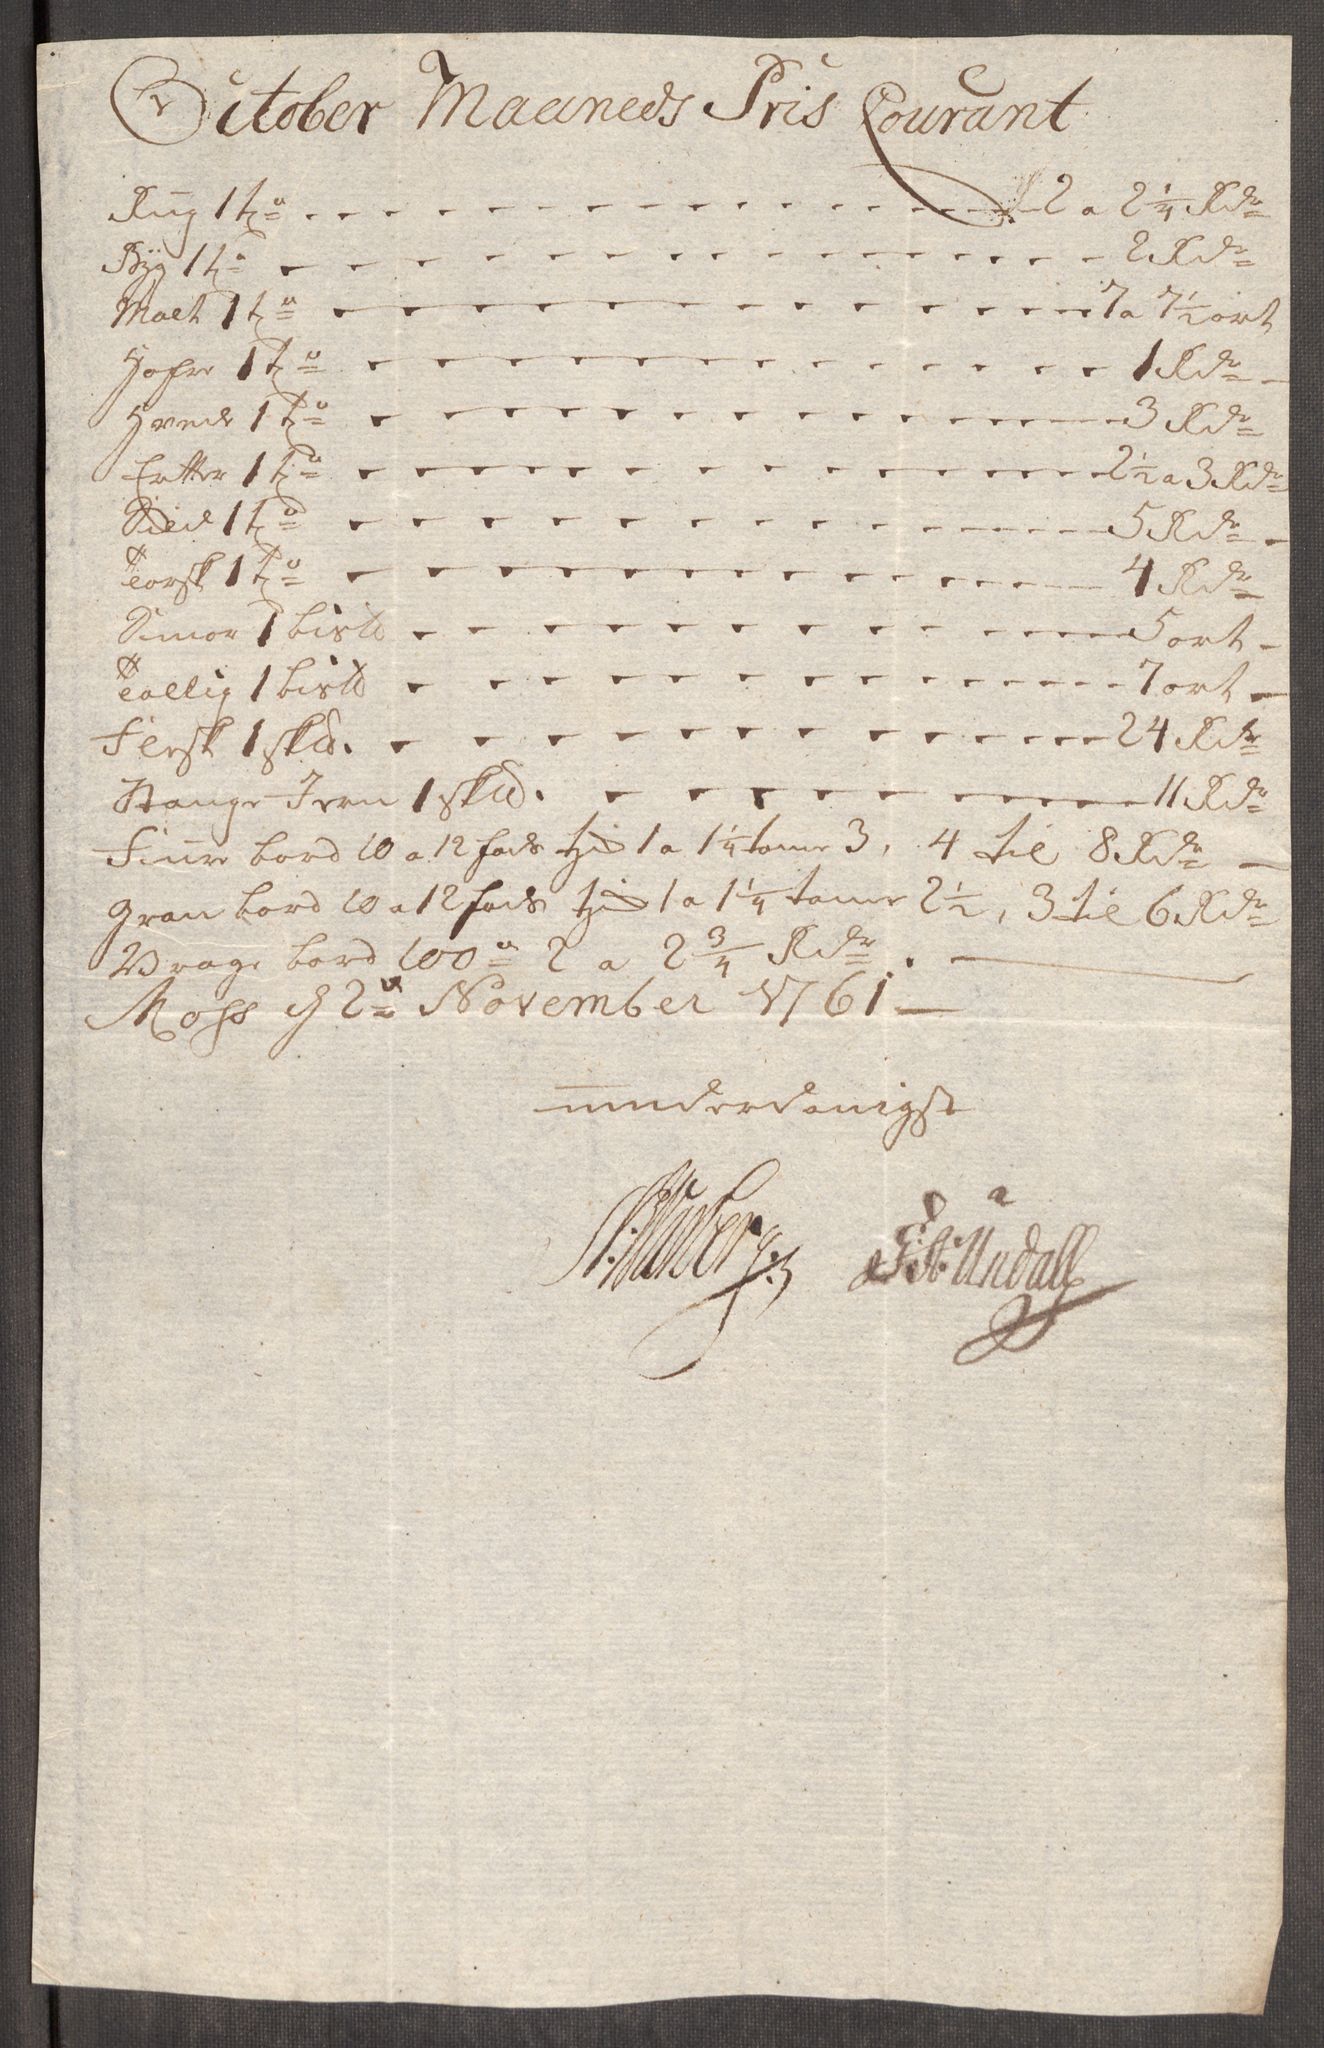 October Maaneds Pris Courant
Rug 1 tø 2 a 2 1/4 Rdr
Byg 1 tø 2 Rdr
Malt 1 tø 7 a 7 1/2 ort
Hafre 1 tø 1 Rdr
Hvede 1 tø 3 Rdr
Ertter 1 tø 2 1/2 a 3 Rdr
Sild 1 tø 5 Rdr
Torsk 1 tø 4 Rdr
Smør 1 bislb 5 ort
Tallig 1 bislb 7 ort
Fersk 1 sklb. 24 Rdr
Stange Jern 1 sklb. 11 Rdr
Furre bord 10 a 12 fods 1 a 1 1/4 tome 3, 4 til 8 Rdr
Gran bord 10 a 12 fods 1 a 1 1/4 tome 2 1/2, 3 til 6 Rdr
Vrage bord 100 2 a 2 3/4 Rdr
Moss d 2 November 1761
underdanigst
Undall